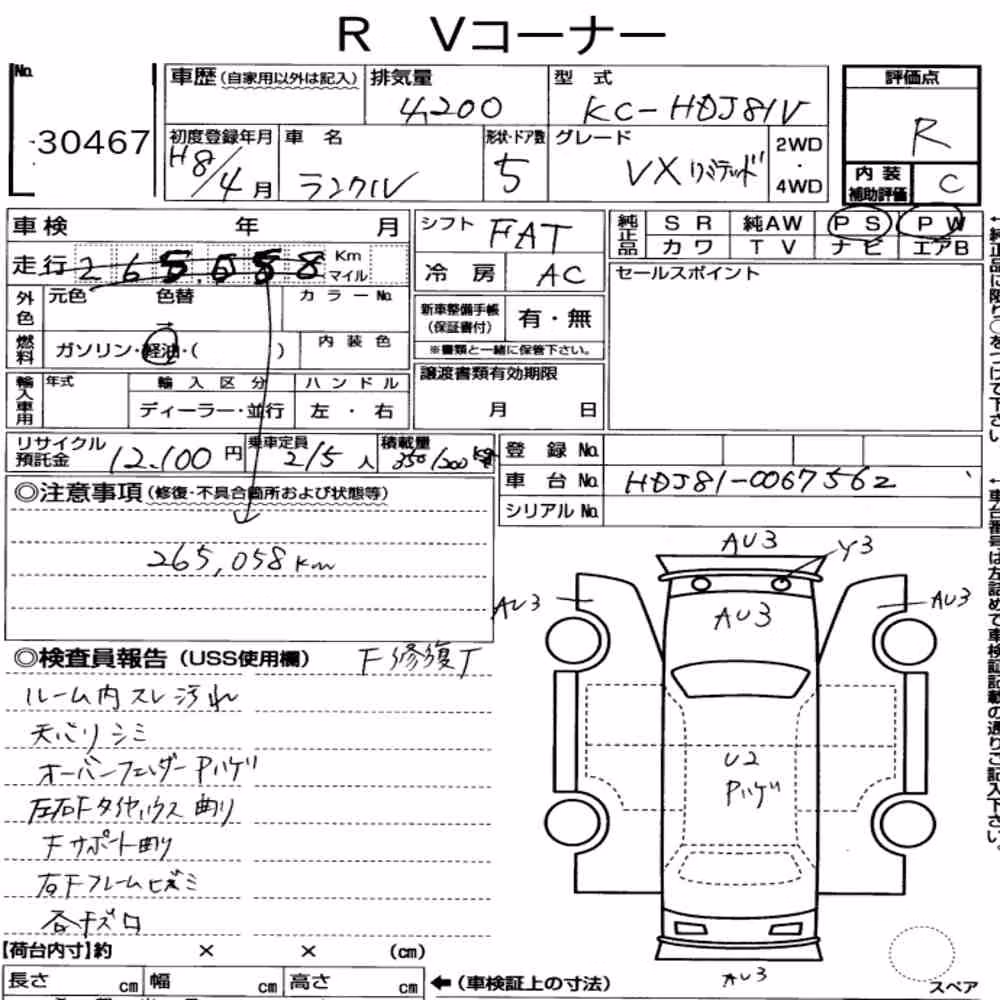 R Vコーナー
No. 30467
車歴 (自家用以外は記入)
排気量 4,200
型式 KC-HDJ81V
評価点 R
初度登録年月 H8/4月
車名 ランクル
形状・ドア数 5
グレード VXリミテッド
2WD・4WD
内装補助評価 C
車検 年 月
シフト FAT
純正品 SR 純AW PS PW
カワ TV ナビ エアB
走行 Km マイル
冷房 AC
セールスポイント
外色 元色 色替 カラーNo.
新車整備手帳(保証書付) 有・無
※書類と一緒に保管下さい。
燃料 ガソリン・軽油・( ) 内装色
輸入車用 年式 輸入区分 ハンドル
ディーラー・並行 左・右
譲渡書類有効期限
月 日
リサイクル預託金 12,100円
乗車定員 2/5人
積載量 350/200kg
登録No.
車台No. HDJ81-0067562
シリアルNo.
◎注意事項 (修復・不具合箇所および状態等)
265,058Km
◎検査員報告 (USS使用欄) F修復T
ルーム内スレ汚れ
天バリシミ
オーバーフェンダーPハゲ
左右Fタイヤハウス曲り
Fサポート曲り
右Fフレームヒズミ
各キズ
AU3
Y3
AU3
AU3
AU3
U2
Pハゲ
AU3
スペア
【荷台内寸】約 × × (cm)
長さ cm 幅 cm 高さ cm
←(車検証上の寸法)
↑純正品に限り○をつけて下さい。
↑車台番号は左詰めで車検証記載の通りご記入下さい。